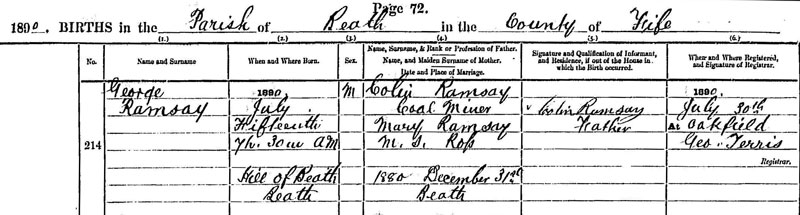 Page 72.
1890. BIRTHS in the Parish of Beath in the County of Fife
(1.) (2.) (3.) (4.) (5.) (6.)
No. Name and Surname When and Where Born. Sex. Name, Surname, & Rank or Profession of Father. Name, and Maiden Surname of Mother. Date and Place of Marriage. Signature and Qualification of Informant, and Residence, if out of the House in which the Birth occurred. When and Where Registered, and Signature of Registrar.
George 1890, M Colin Ramsay 1890.
Ramsay July Coal Miner Colin Ramsay July 30th
Fifteenth Mary Ramsay Father At Oakfield
214 7h. 30m AM M. S. Ross Geo. Terris
Registrar.
Hill of Beath 1880 December 31st
Beath Beath